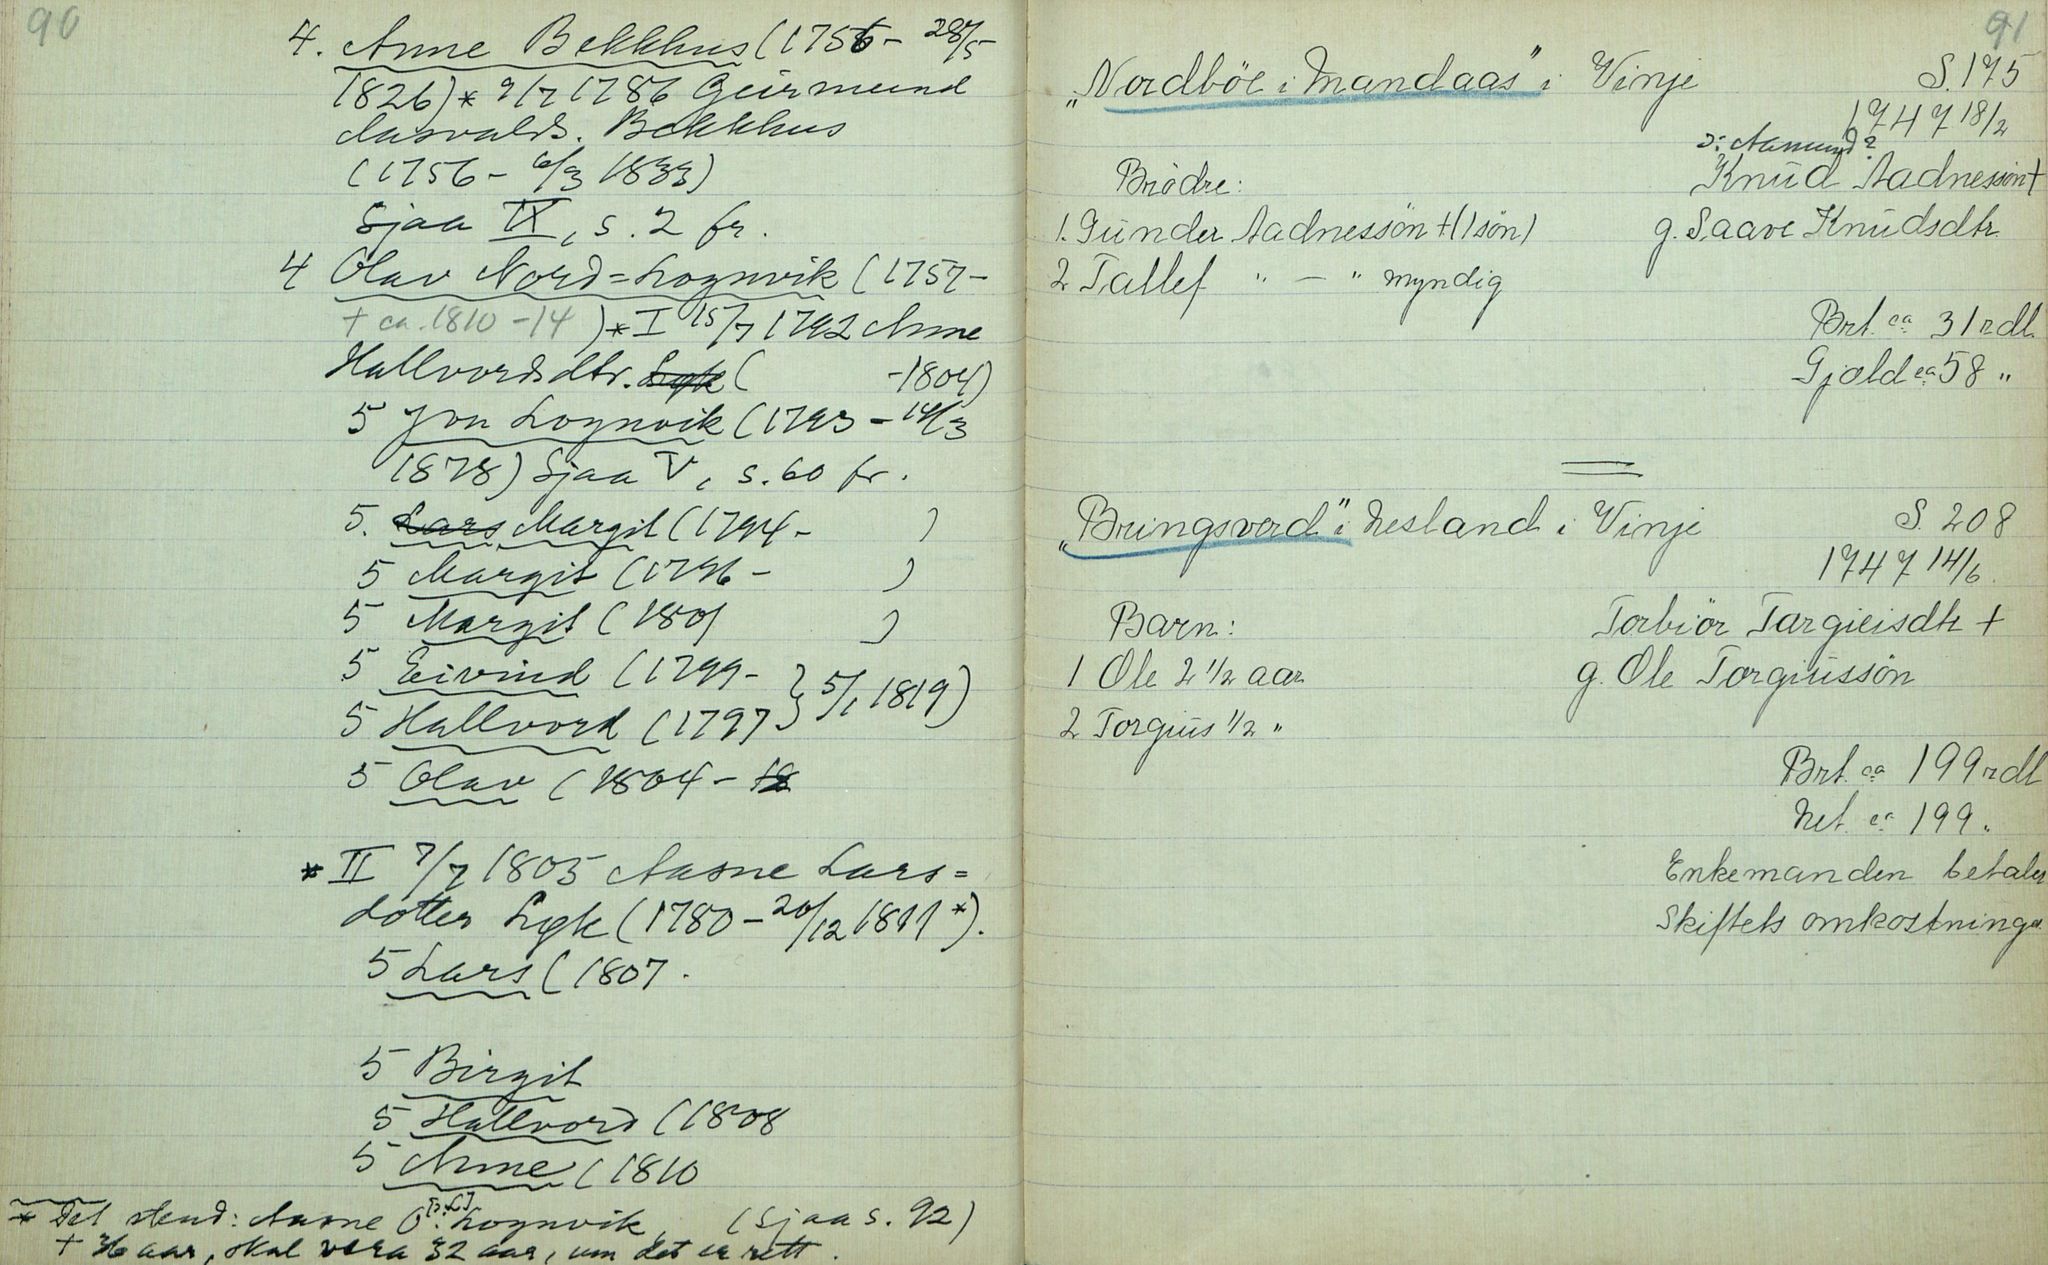 90
4. Anne Bekkhus (1756 - 28/5
1826) * 9/7 1786 Geirmund
Aasvalds. Bekkhus
(1756 - 6/3 1833)
Sjaa IX, s. 2 fr.
4 Olav Nord=Lognvik (1757-
+ ca. 1810-14) * I 15/7 1792 Anne
Hallvordsdtr. Lyk ( -1804)
5 Jon Lognvik (1793 - 14/3
1878) Sjaa V, s. 60 fr.
5. Lars Margit (1794 - )
5 Margit (1796 - )
5 Margit (1801 )
5 Eivind (1799-
5 Hallvord (1797 } 5/1 1819)
5 Olav (1804 - 18
* II 7/7 1805 Aasne Lars=
dotter Lyk (1780 - 20/12 1811 *).
5 Lars (1807.
5 Birgit
5 Hallvord (1808
5 Anne (1810
* Det stend: Aasne O. [?: L] Lognvik, (Sjaa s. 92)
+ 36 aar, skal vera 32 aar, um det er rett.
91
„Nordböe i Mandaas" i Vinje S. 175
1747 18/2
ɔ: Aamund?
Brödre: Knud Aadnessön +
1. Gunder Aadnessön + (1 sön) g. Saave Knudsdtr.
2 Tallef " — " myndig
Brt. ca 31 rdl.
Gjæld ca 58 "
„Bringsverd" i Nesland i Vinje S. 208
1747 14/6.
Barn: Torbiör Targieisdtr +
1 Ole 2 1/2 aar g. Ole Torgiussön
2 Torgius 1/2 "
Brt. ca 199 rdl
Net. ca 199 "
Enkemanden betaler
Skiftets omkostninger.